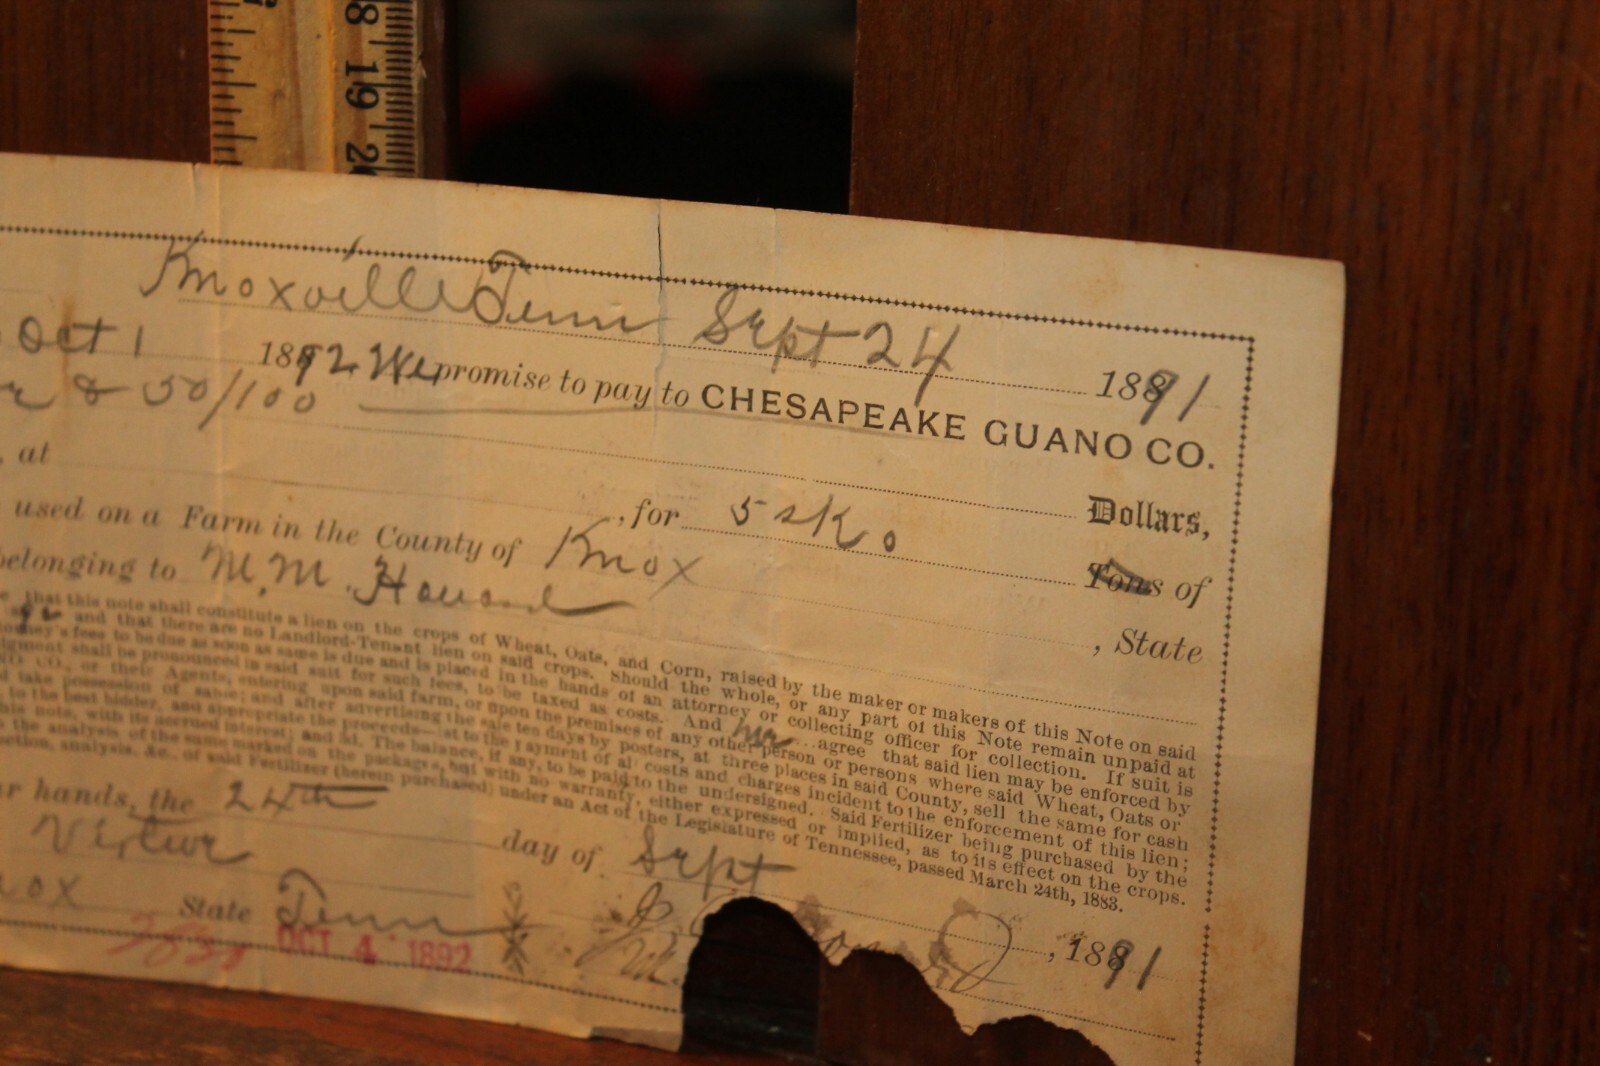 8 19 20
Knoxville Tenn Sept 24 1891
Oct 1 1892 We promise to pay to CHESAPEAKE GUANO CO.
& 50/100
Dollars,
, at , for 5 sks Tons of
used on a Farm in the County of Knox , State
belonging to M. M. Howard
that this note shall constitute a lien on the crops of Wheat, Oats, and Corn, raised by the maker or makers of this Note on said
and that there are no Landlord-Tenant lien on said crops. Should the whole, or any part of this Note remain unpaid at
attorney's fees to be due as soon as same is due and is placed in the hands of an attorney or collecting officer for collection. If suit is
judgment shall be pronounced in said suit for such fees, to be taxed as costs. And we agree that said lien may be enforced by
CO., or their Agents, entering upon said farm, or upon the premises of any other person or persons where said Wheat, Oats or
take possession of same; and after advertising the sale ten days by posters, at three places in said County, sell the same for cash
to the best bidder, and appropriate the proceeds—1st to the payment of all costs and charges incident to the enforcement of this lien;
this note, with its accrued interest; and 3d. The balance, if any, to be paid to the undersigned. Said Fertilizer being purchased by the
the analysis of the same marked on the packages, but with no warranty, either expressed or implied, as to its effect on the crops.
analysis, &c., of said Fertilizer (herein purchased) under an Act of the Legislature of Tennessee, passed March 24th, 1883.
hands, the 24th day of Sept , 1891
Virtue
nox State Tenn
OCT 4 1892